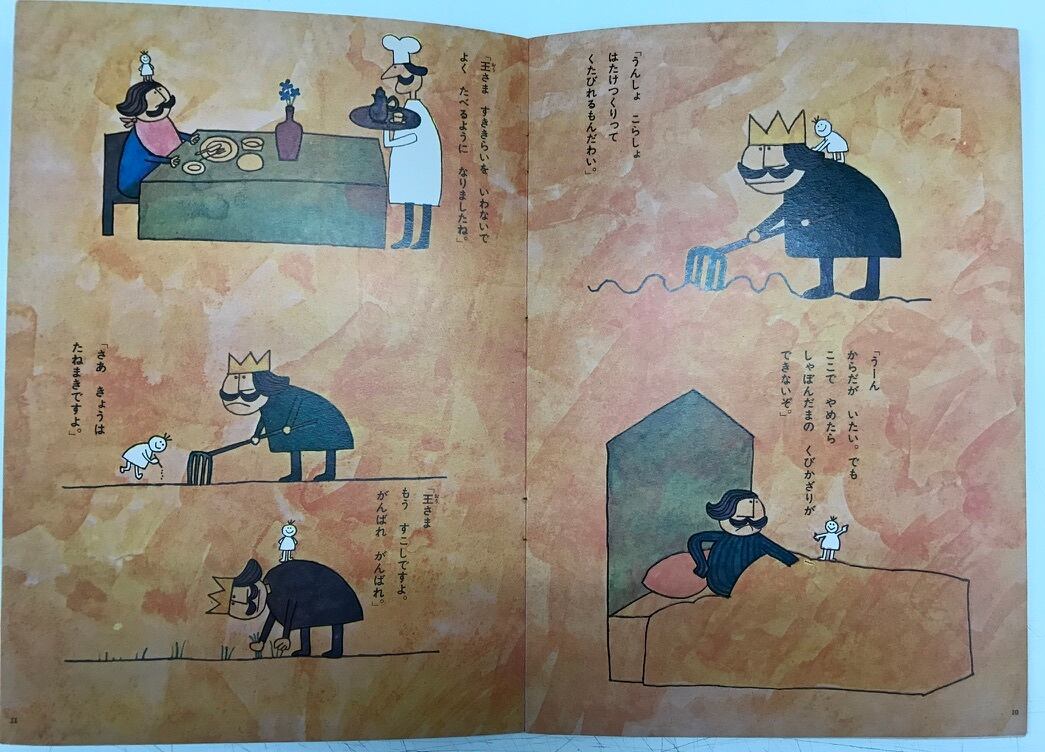 「うんしょ　こらしょ
はたけつくりって
くたびれるもんだわい。
「うーん
からだが　いたい。でも
ここで　やめたら
しゃぼんだまの　くびかざりが
できないぞ。」
10
「王さま　すききらいを　いわないで
おう
よく　たべるように　なりましたね。」
「さあ　きょうは
たねまきですよ。」
「王さま
おう
もう　すこしですよ。
がんばれ　がんばれ。」
11